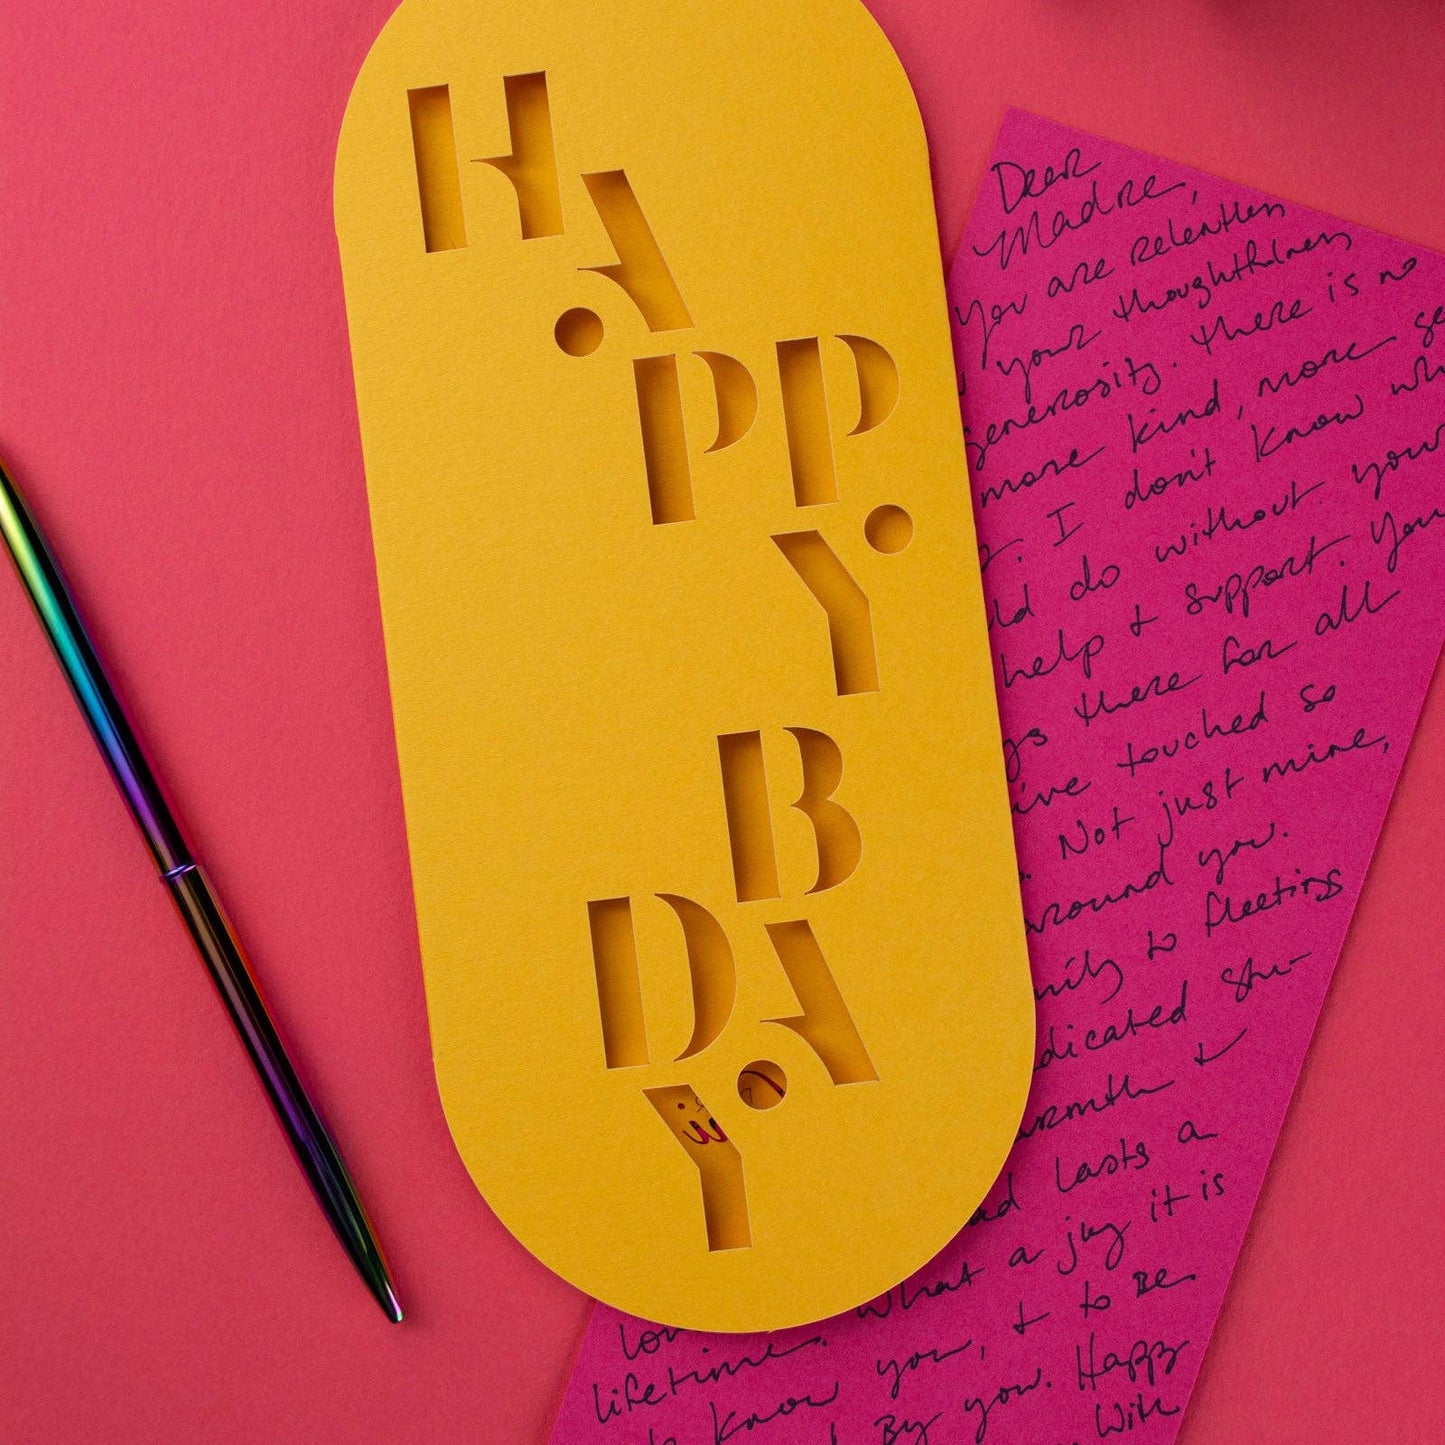 H
A
PP
Y
B
DA
Y
Dear
Madre,
You are relentless
your thoughtfulness
generosity. there is no
more kind, more
I don't know
do without your
help + support. You
there for all
touched so
Not just mine,
around you.
to fleeting
warmth +
lasts a
What a joy it is
lifetime.
know you, + to be
By you. Happy
With